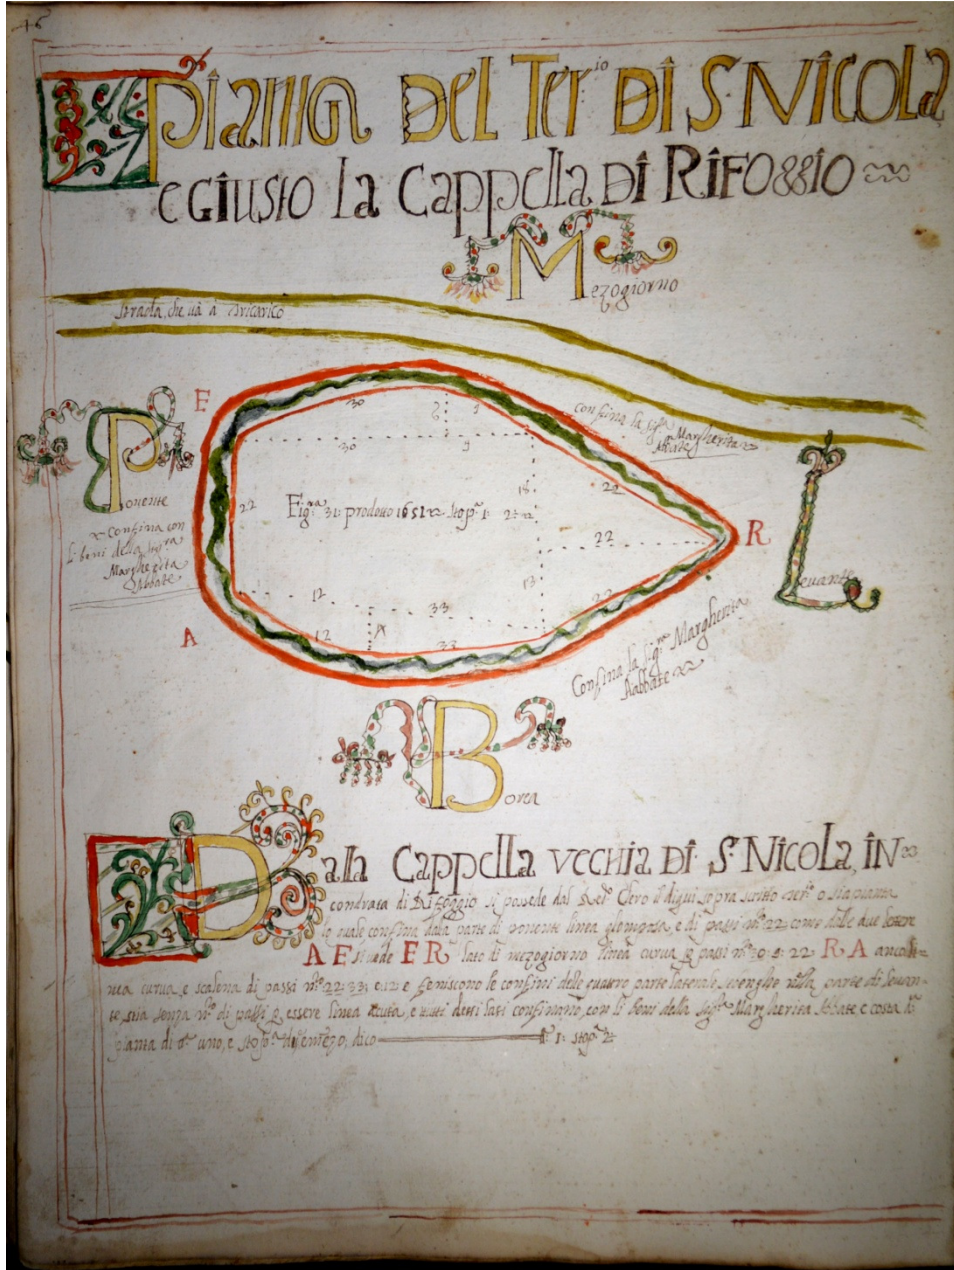 46
Pianta Del Ter.io Di S. Nicola
e Giusto la Cappella Di Rifoggio
Mezogiorno
Strada, che và à Tricarico
F
30 9
30 9
confina la sig.ra Margherita
Abbate
Ponente
confina con
li beni della sig.ra
Margherita
Abbate
22
Fig.ra 31: prodotto 1651 stop.a 1: 2:
18
22
22
R
Levante
13
22
12
33
A
12
33
Confina la sig.ra Margherita
Aabbate
Borea
Dala Cappella vecchia Di S. Nicola, in
condrata di Rifoggio si possede dal Rev.o Clero il di qui sopra scritto ter.o o sia pianta
lo quale confina dala parte di ponente linea e di passi n.o 22 come dalle due lettere
A F si vede F R lato di mezogiorno linea curva passi n.o 30: 9: 22 R A anco li-
nea curva, e scalena di passi n.o 22: 33: e 12 e feniscono le confini delle quatro parte laterale nella parte di levan-
te stia senza n.o di passi essere linea acuta, e tutti detti lati confinano, con li beni della sig.ra Margherita Abbate e costa d.a
pianta di uno, e stop.a di mezo, dico 1: stop.a 2